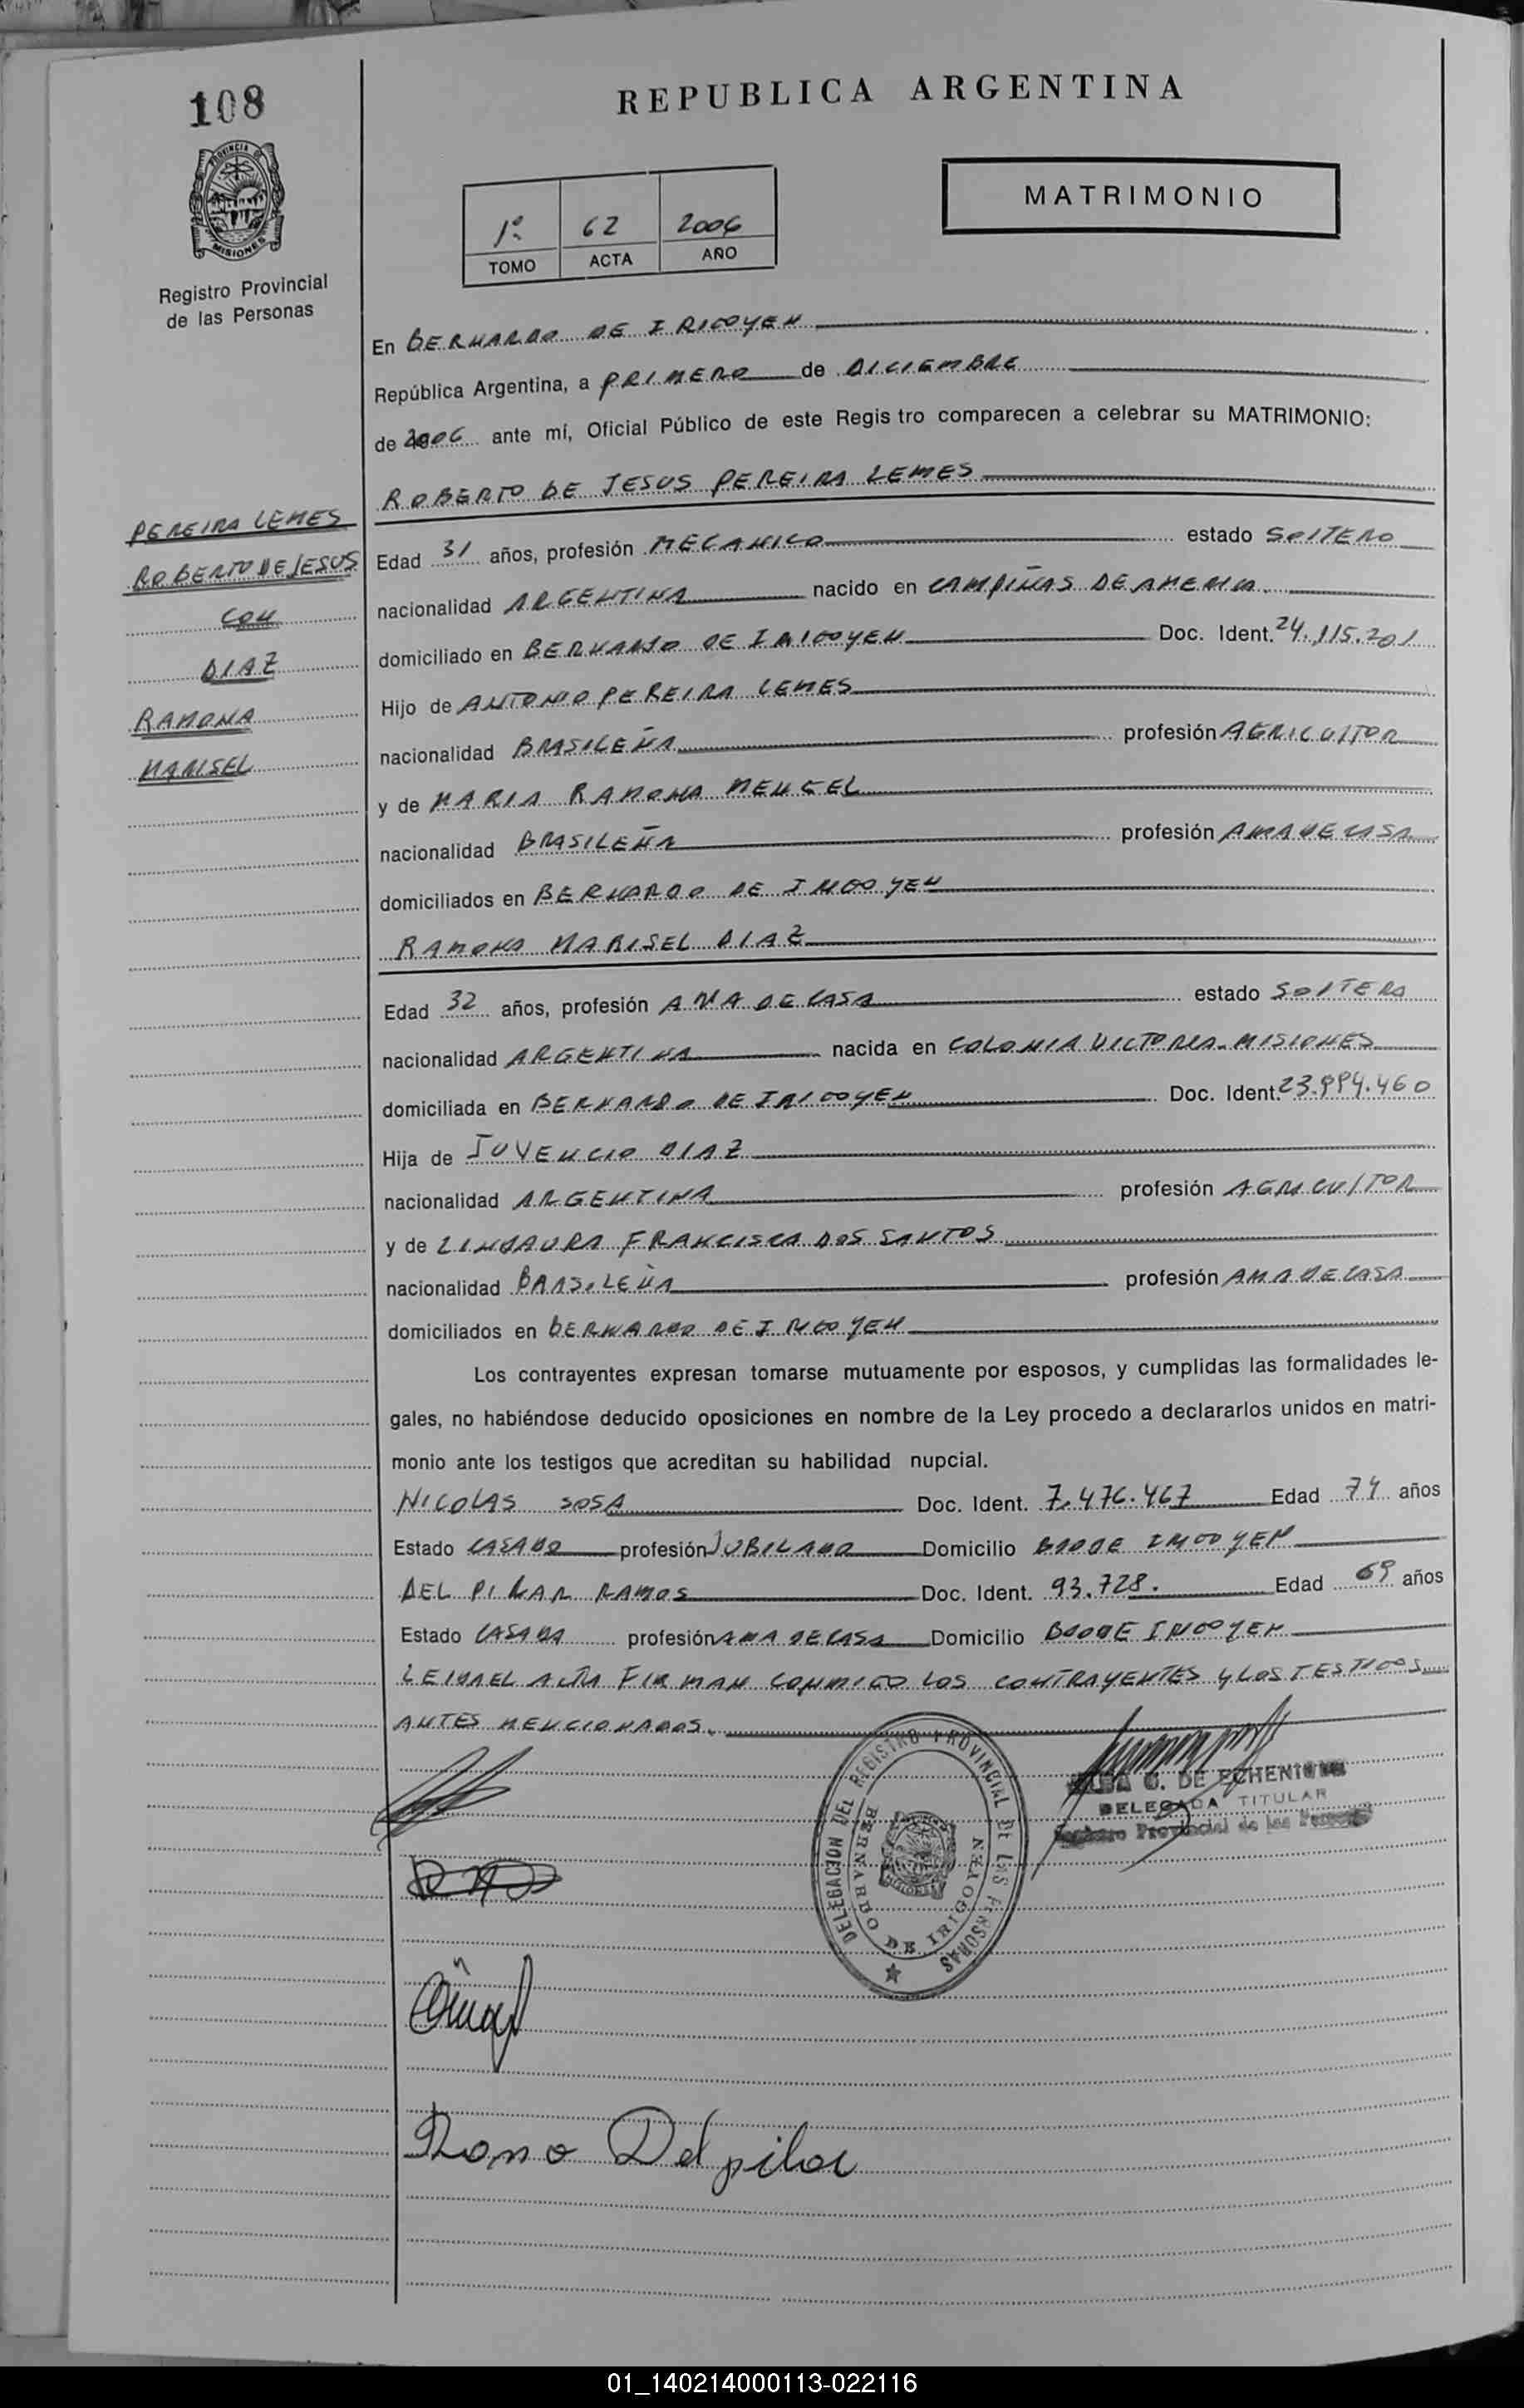 108
REPUBLICA ARGENTINA
PROVINCIA DE
MISIONES
Registro Provincial
de las Personas
MATRIMONIO
1º 62 2006
TOMO ACTA AÑO
En BERNARDO DE IRIGOYEN
República Argentina, a PRIMERO de DICIEMBRE
de 2006 ante mí, Oficial Público de este Regis tro comparecen a celebrar su MATRIMONIO:
ROBERTO DE JESUS PEREIRA LEMES
PEREIRA LEMES
ROBERTO DE JESUS
CON
DIAZ
RAMONA
MARISEL
Edad 31 años, profesión MECANICO estado SOLTERO
nacionalidad ARGENTINA nacido en CAMPIÑAS DE AMERICA
domiciliado en BERNARDO DE IRIGOYEN Doc. Ident. 24.115.201
Hijo de ANTONIO PEREIRA LEMES
nacionalidad BRASILEÑA profesión AGRICULTOR
y de MARIA RAMONA MENGEL
nacionalidad BRASILEÑA profesión AMA DE CASA
domiciliados en BERNARDO DE IRIGOYEN
RAMONA MARISEL DIAZ
Edad 32 años, profesión AMA DE CASA estado SOLTERA
nacionalidad ARGENTINA nacida en COLONIA VICTORIA - MISIONES
domiciliada en BERNARDO DE IRIGOYEN Doc. Ident.
Hija de JUVENCIO DIAZ
nacionalidad ARGENTINA profesión AGRICULTOR
y de LINDAURA FRANCISCA DOS SANTOS
nacionalidad BRASILEÑA profesión AMA DE CASA
domiciliados en BERNARDO DE IRIGOYEN
Los contrayentes expresan tomarse mutuamente por esposos, y cumplidas las formalidades le-
gales, no habiéndose deducido oposiciones en nombre de la Ley procedo a declararlos unidos en matri-
monio ante los testigos que acreditan su habilidad nupcial.
NICOLAS SOSA Doc. Ident. 7.476.467 Edad 74 años
Estado CASADO profesión JUBILADO Domicilio BDODE IRIGOYEN
DEL PILAR RAMOS Doc. Ident. 93.728. Edad 69 años
Estado CASADA profesión AMA DE CASA Domicilio BDODE IRIGOYEN
LEIDA EL ACTA FIRMAN CONMIGO LOS CONTRAYENTES Y LOS TESTIGOS
ANTES MENCIONADOS.
DELEGACION DEL REGISTRO PROVINCIAL DE LAS PERSONAS
BERNARDO DE IRIGOYEN
DE ECHENIQUE
DELEGADA TITULAR
Registro Provincial de las Personas
Ramo Del pilar
01_140214000113-022116